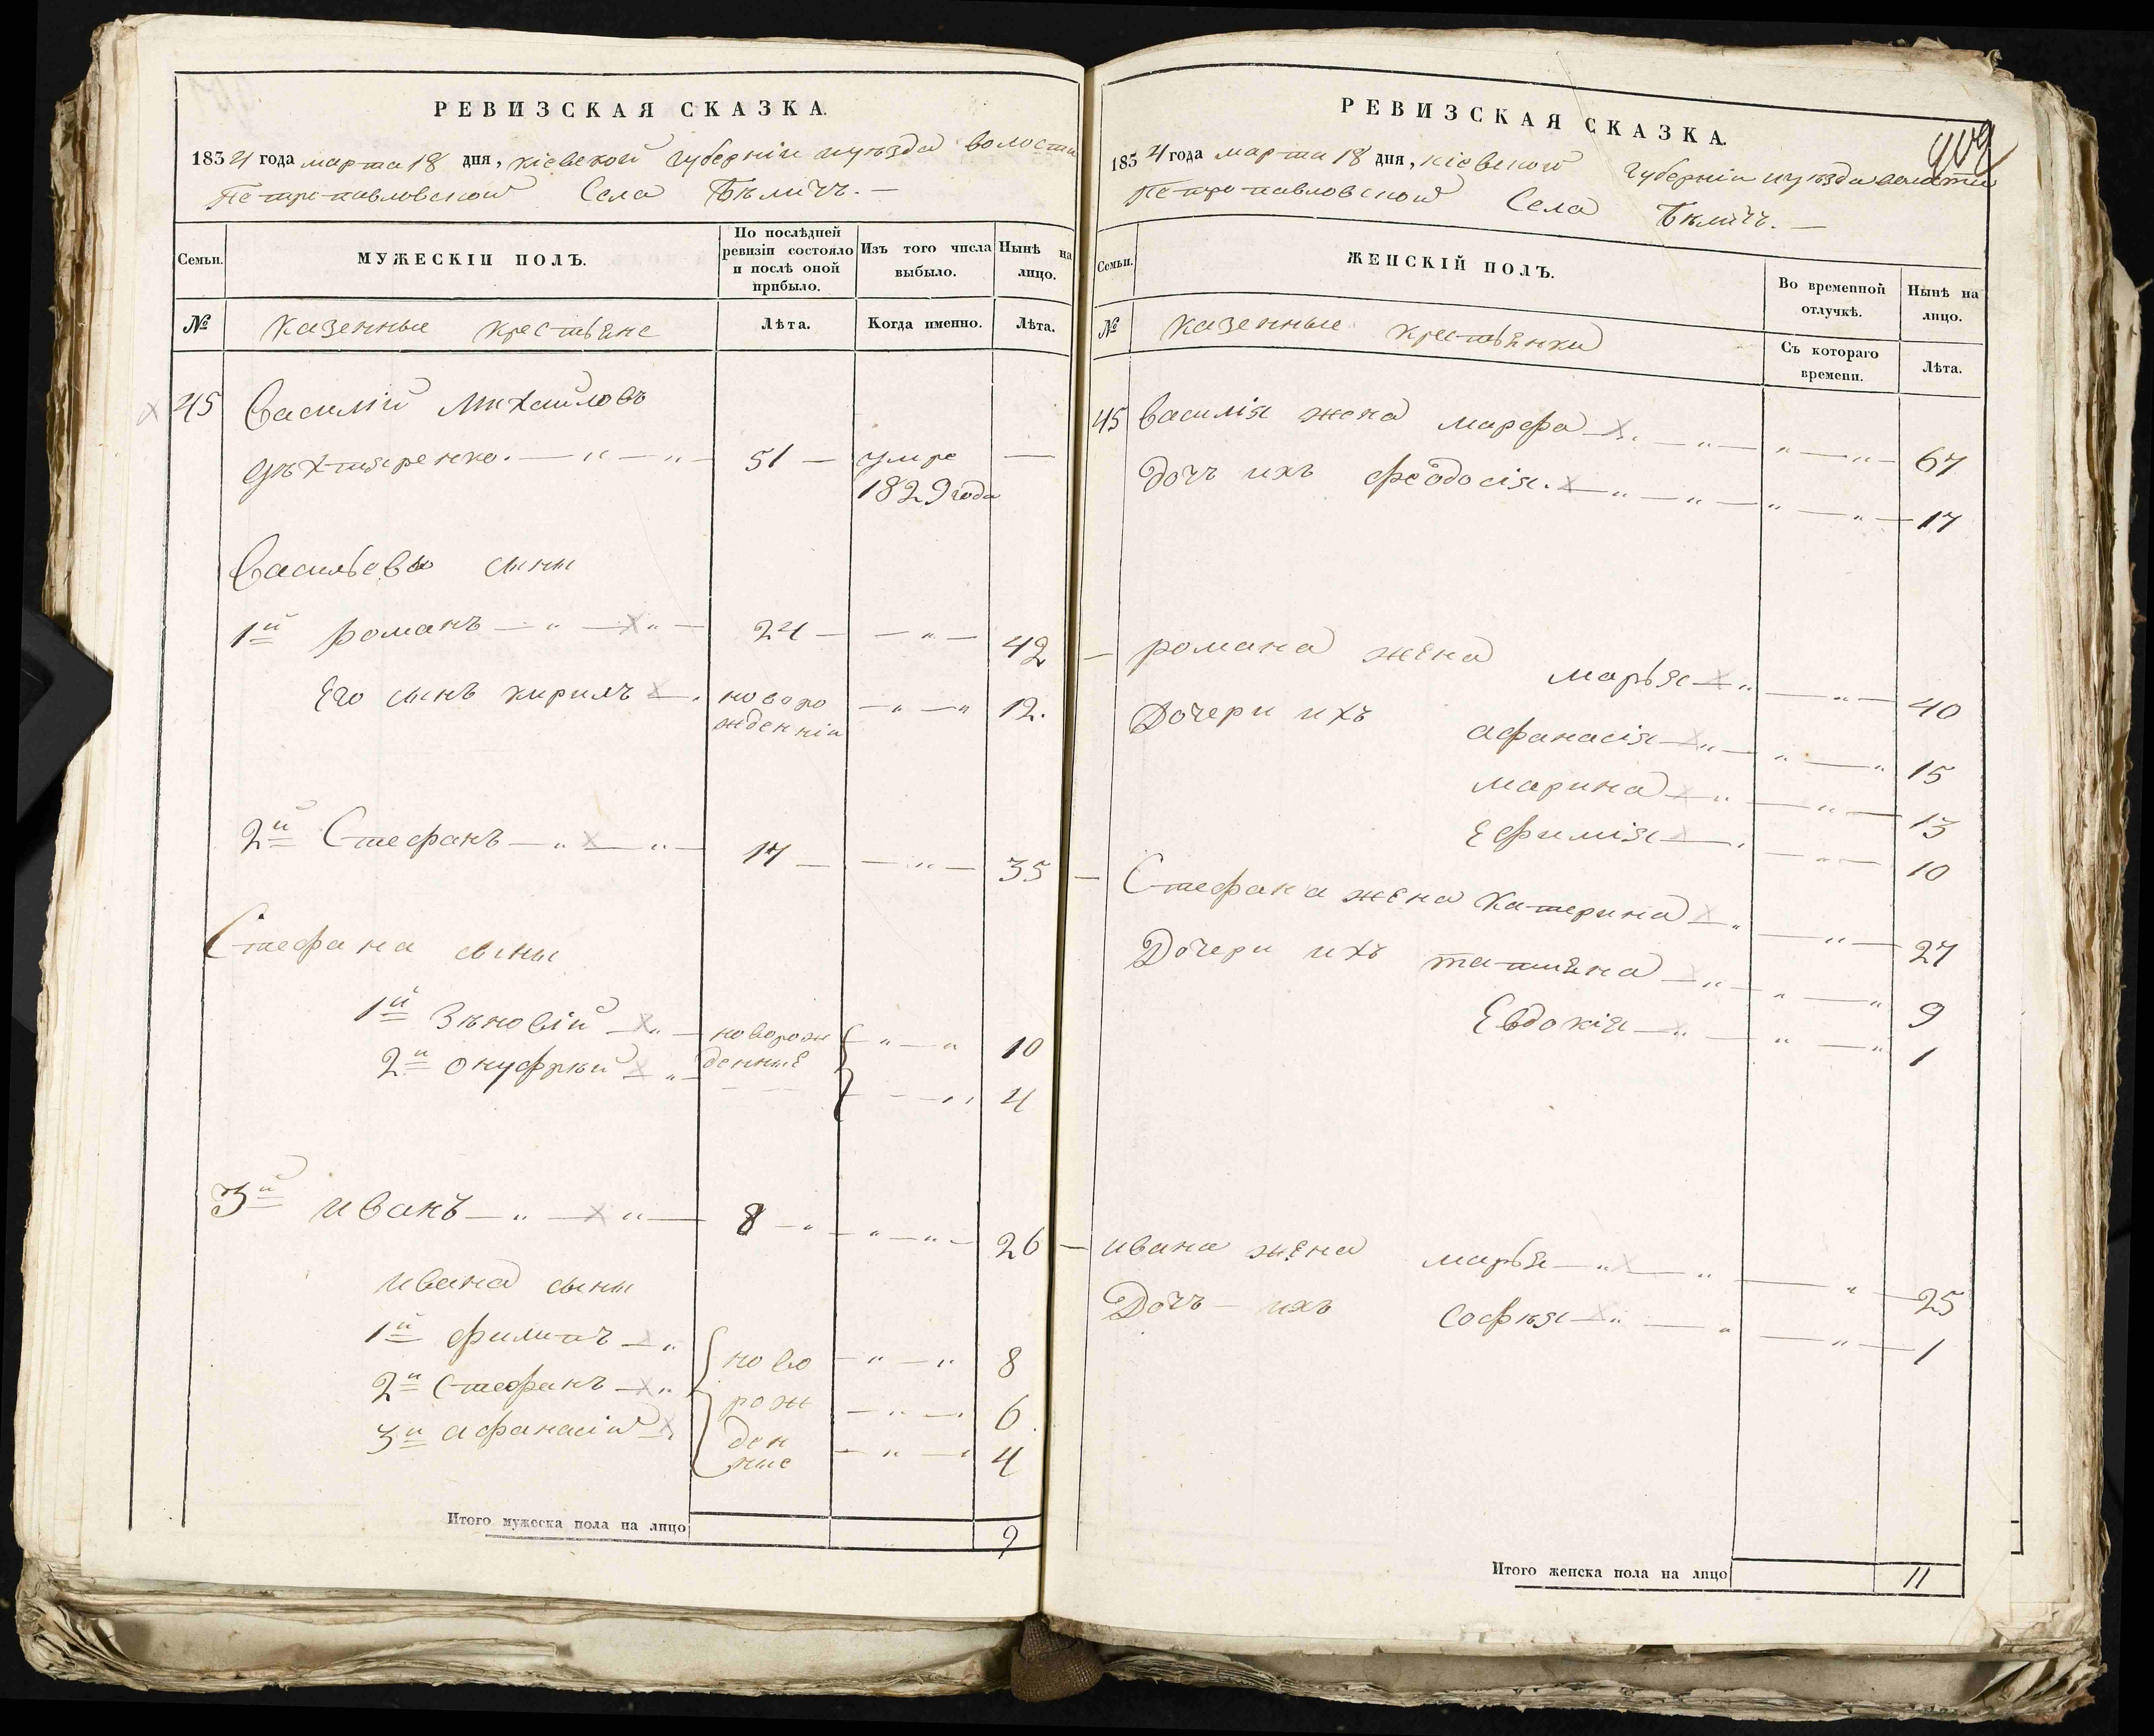 РЕВИЗСКАЯ СКАЗКА.
1834 года марта 18 дня, кіевской губерніи иуѣзда волости
Петро павловской Села Бѣличъ. —
Семьи.
МУЖЕСКІЙ ПОЛЪ.
По послѣдней ревизіи состояло и послѣ оной прибыло.
Изъ того числа выбыло.
Нынѣ на лицо.
№
казенные крестьяне
Лѣта.
Когда именно.
Лѣта.
45 Василій Михайловъ
51 — умре —
1829 года
Васильевы сыны
1й романъ 24 — 42
Его сынъ кирилъ новоро 12.
жденній
2й Стефанъ 17 — 35
Стефана сыны
1й Зѣновій новорож 10
2й онуфрій денные
4
3й иванъ 8 26
ивана сыны
1й филипъ ново 8
2й Стефанъ рож 6
3й афанасій ден 4
ные
Итого мужеска пола на лицо 9
РЕВИЗСКАЯ СКАЗКА.
409
1834 года марта 18 дня, кіевской губерніи иуѣзда волости
Петро павловской Села Бѣличъ. —
Семьи.
ЖЕНСКІЙ ПОЛЪ.
Во временной отлучкѣ.
Нынѣ на лицо.
№
казенные крестьянки
Съ котораго времени.
Лѣта.
45 Василія жена марфа 67
дочъ ихъ феодосія. 17
романа жена марья 40
Дочери ихъ афанасія 15
марина 13
Ефимія 10
Стефана жена Катерина 27
Дочери ихъ татіяна 9
Евдокія 1
ивана жена марья 25
Дочъ ихъ Софья 1
Итого женска пола на лицо 11